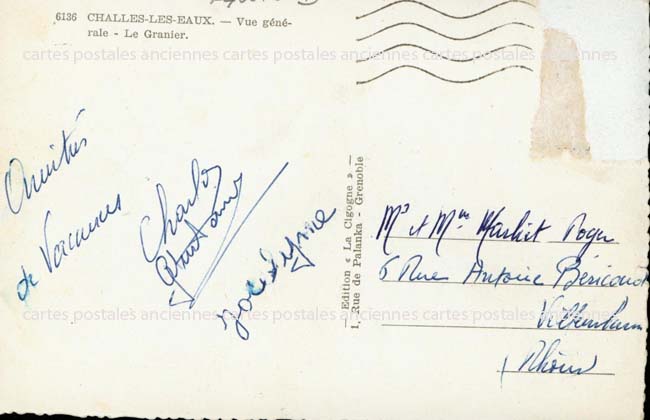 6136 CHALLES-LES-EAUX. — Vue géné-
rale - Le Granier.
cartes postales anciennes cartes postales anciennes cartes postales anciennes
Amitiés
de Vacances
Charles
cartes postales anciennes cartes postales anciennes cartes postales anciennes
— Edition « La Cigogne » —
1, Rue de Palanka - Grenoble
Mr et Mme Roger
6 Rue Antoine Béricaud
Villeurbanne
Rhône
cartes postales anciennes cartes postales anciennes cartes postales anciennes